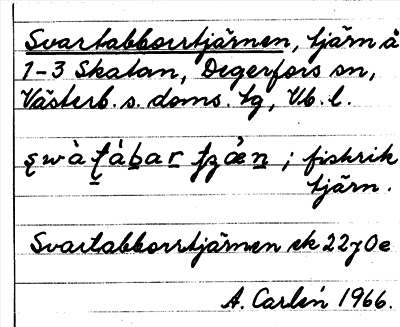 Svartabborrtjärnen, tjärn å
1-3 Skatan, Degerfors sn,
Västerb. s. doms. tg, Vb. l.
; fiskrik
tjärn.
Svartabborrtjärnen ek 22 7 0 e
A. Carlén 1966.